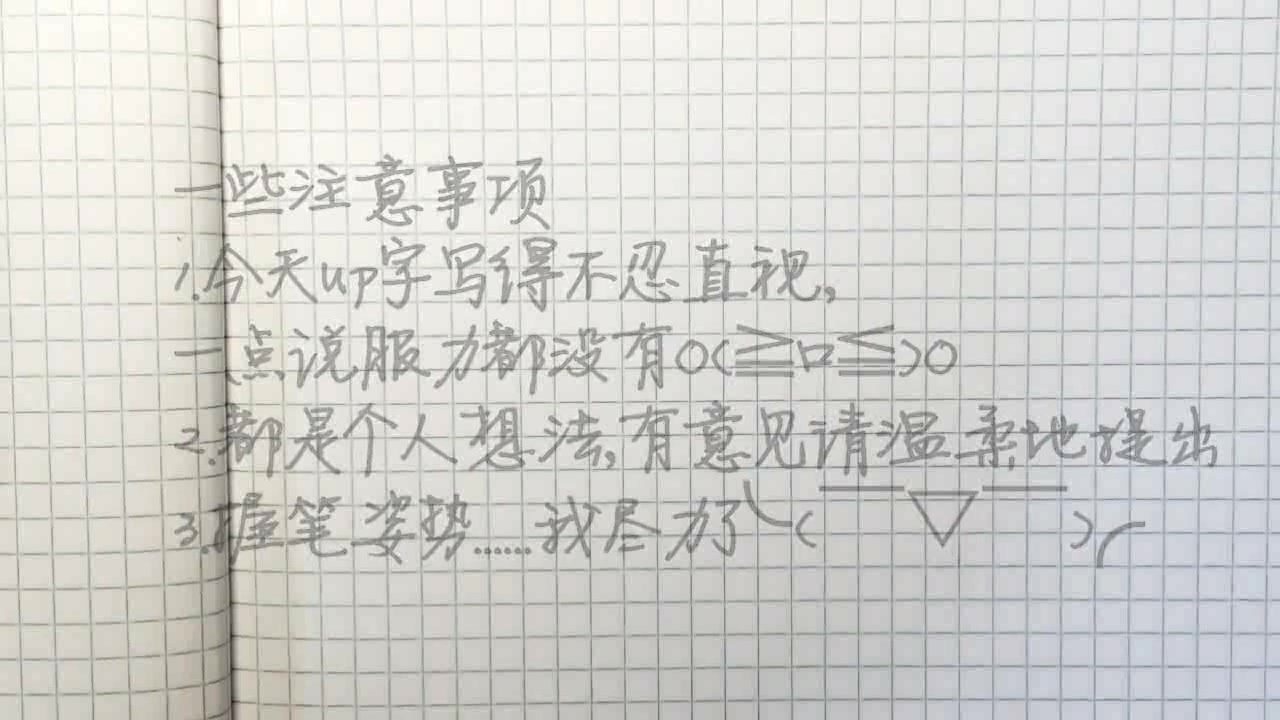 一些注意事项
1.今天up字写得不忍直视,
一点说服力都没有O(≧口≦)O
2.都是个人想法,有意见请温柔地提出
3.握笔姿势......我尽力了╮(￣▽￣)╭